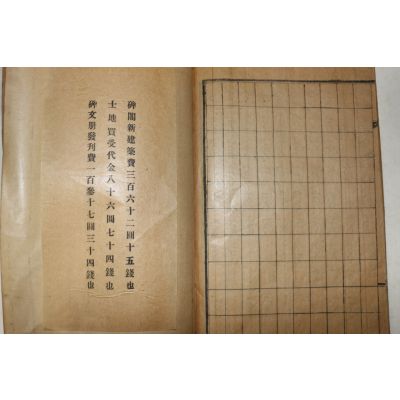 碑閣新建築費三百六十二圓十五錢也
土地買受代金八十六圓七十四錢也
碑文册發刊費一百參十七圓三十四錢也